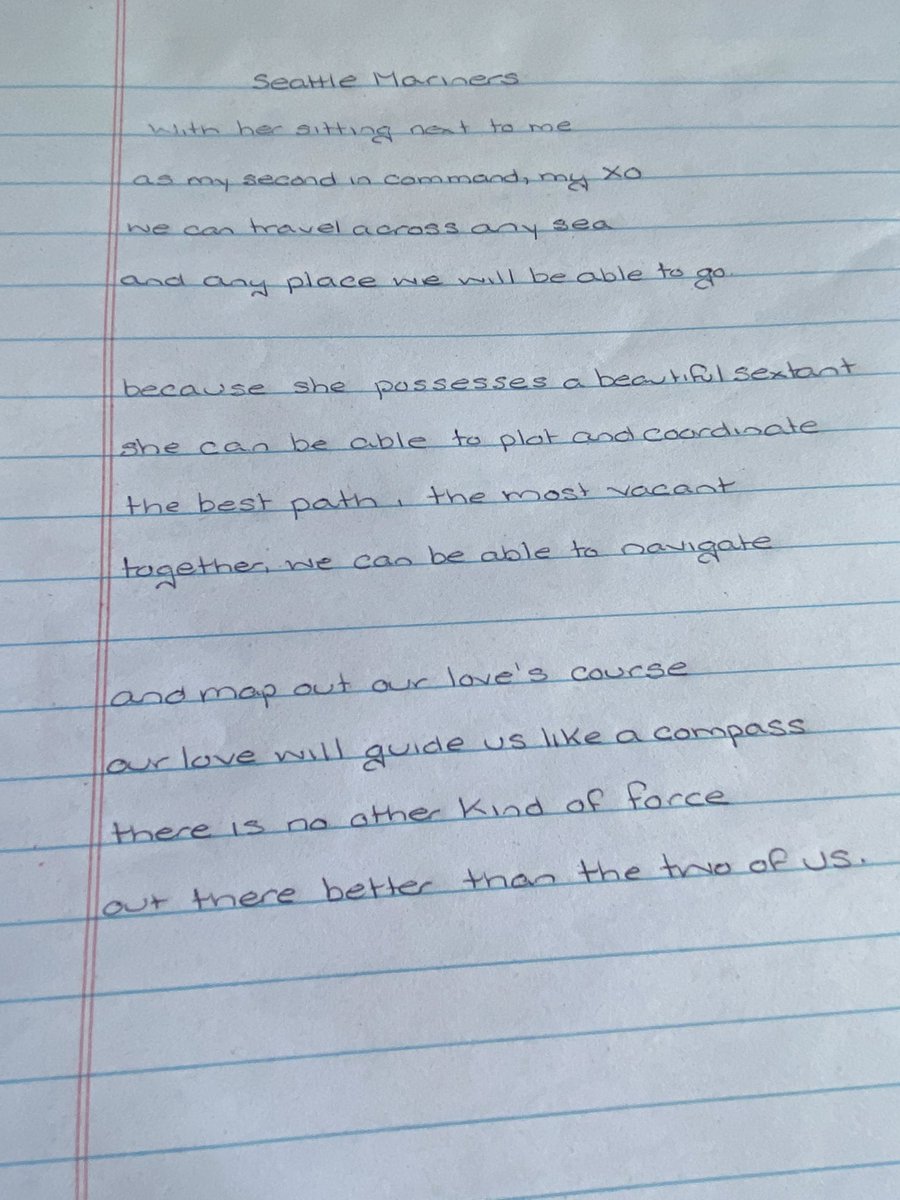 Seattle Mariners
with her sitting next to me
as my second in command, my XO
we can travel across any sea
and any place we will be able to go.
because she possesses a beautiful sextant
she can be able to plot and coordinate
the best path, the most vacant
together, we can be able to navigate
and map out our love's course
our love will guide us like a compass
there is no other kind of force
out there better than the two of us.